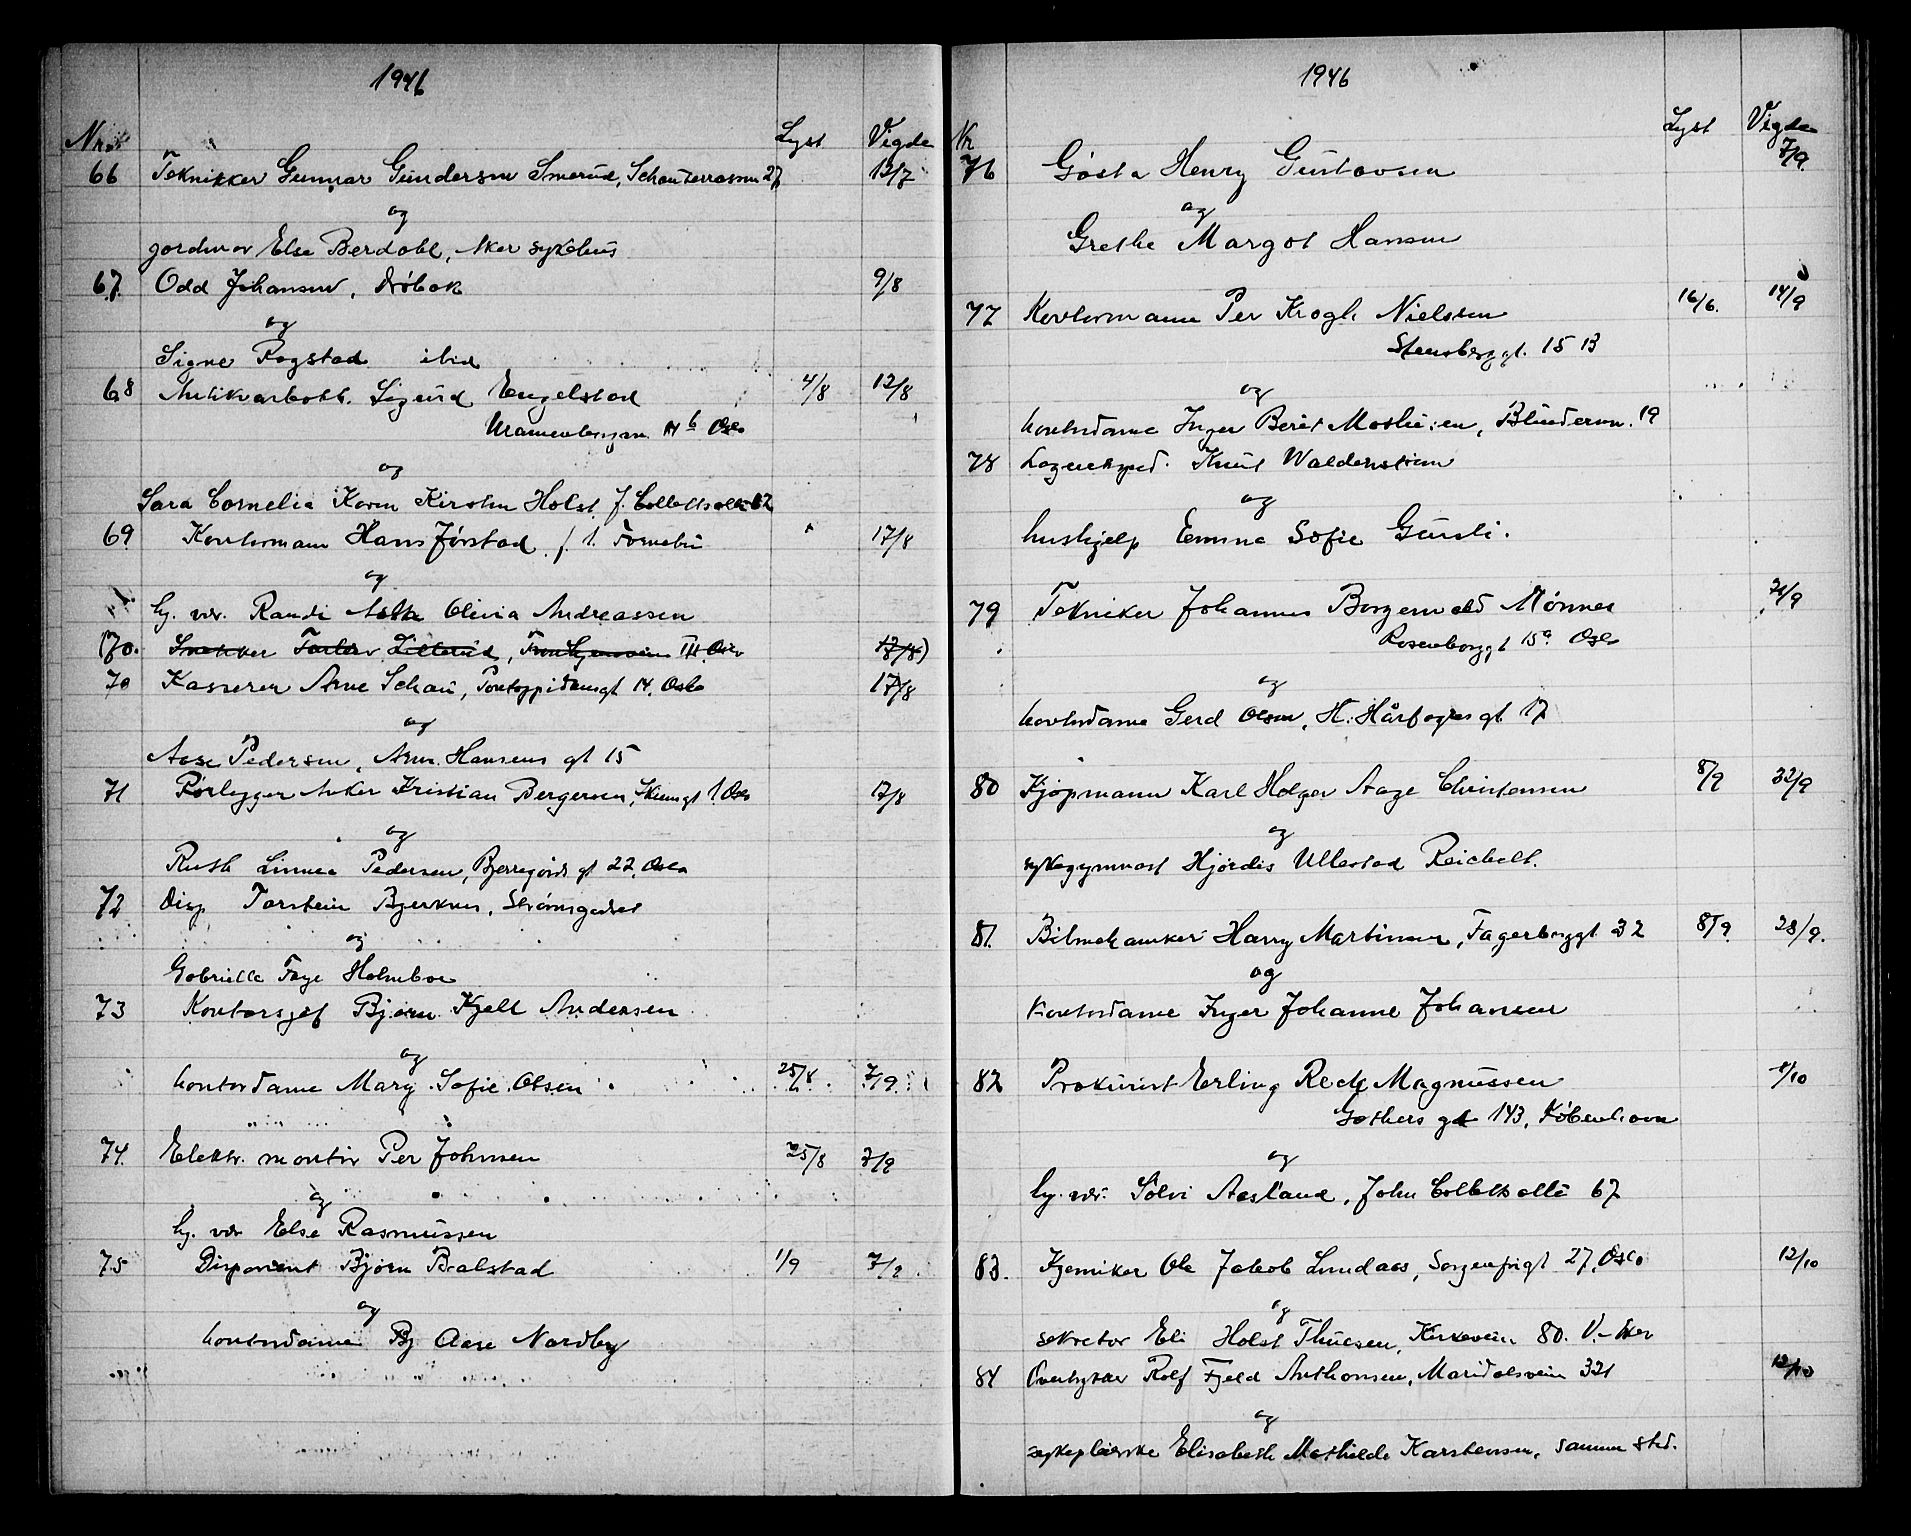 1946
Nr. Lyst Vigde
66 Teknikker Gunnar Gundersen Smerud, Schouterrassen 27 13/7
og
jordmor Else Berdahl, Aker sykehus
67. Odd Johansen, Drøbak 9/8
og
Signe Rogstad ibid
68 Antikvarbokh. Sigurd Engelstad 4/8 12/8
Uranienborgvn. 14 b Oslo
og
Sara Cornelia Karen Kirsten Holst J. Colletts alle
69 Kontormann Hans Jørstad, f. 1. Fornebu 17/8
og
hj. vær. Randi Asta Olivia Andreassen
(70. Snekker III Oslo
70 Kasserer Arne Schau, Pontoppidansgt 14, Oslo 17/8
og
Aase Pedersen, Arne Hansens gt 15
71 Rørlegger Aker Kristian Bergersen, 1 Oslo 17/8
og
Ruth Linnea Pedersen, Bjerregårds gt 22, Oslo
72 Disp Torstein Bjerknes, Strømsgodset
og
Gabrielle Faye Holmboe
73 Kontorsjef Bjørn Kjell Andersen
og
kontordame Mary Sofie Olsen 25/8 7/9
74. Elektr. montør Per Johnsen 25/8 7/9
og
hj. vær Else Rasmussen
75 Disponent Bjørn Balstad 1/9 7/9
og
kontordame Bj Aase Nordby
1946
Nr Lyst Vigde
76 Gösta Henry Gustavsen 7/9.
og
Grethe Margot Hansen
77 Kontormann Per Krogh Nielsen 16/6. 14/9
Stensberggt. 15 B
og
kontordame Inger Berit Blindernvn. 19
78 Lagereksped. Knut Waldenstrøm
og
hushjelp Emma Sofie Gursli.
79 Tekniker Johannes Borgenvold Mönnes 21/9
Rosenborggt 15 a Oslo
og
kontordame Gerd Olsen, H. Hårfagres gt 17
80 Kjøpmann Karl Holger Aage Christensen 8/9 22/9
og
sykegymnast Hjördis Ullestad Reichelt.
81. Bilmekaniker Harry Martinsen, Fagerborggt 32 8/9 28/9.
og
Kontordame Inger Johanne Johansen
82 Prokurist Erling Rede Magnussen 4/10
Gothers gt 143, København
og
hj. vær. Sölvi Aasland, John Colletts alle 67
83. Kjemiker Ole Jakob Lundaas, Sorgenfrigt 27, Oslo 12/10
og
sekretær Eli Holst Thuesen, Kirkeveien 80. V-Aker
84 Overbygter Rolf Fjeld Anthonsen, Maridalsveien 321 12/10
og
sykepleierske Elisabeth Mathilde Karstensen, samme sted.